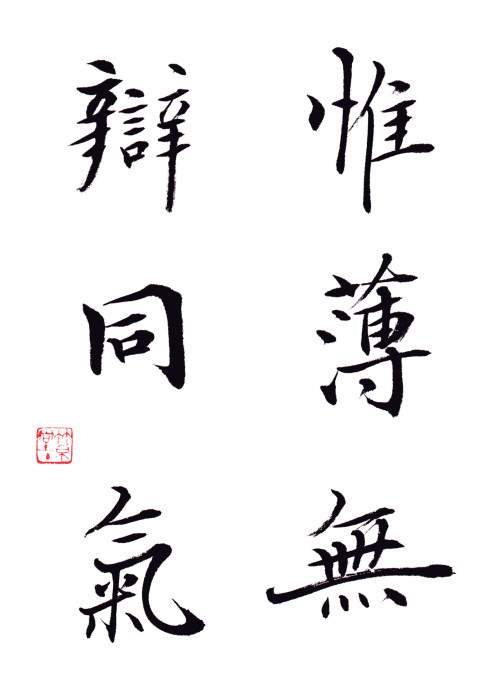 惟薄無
辯同氣